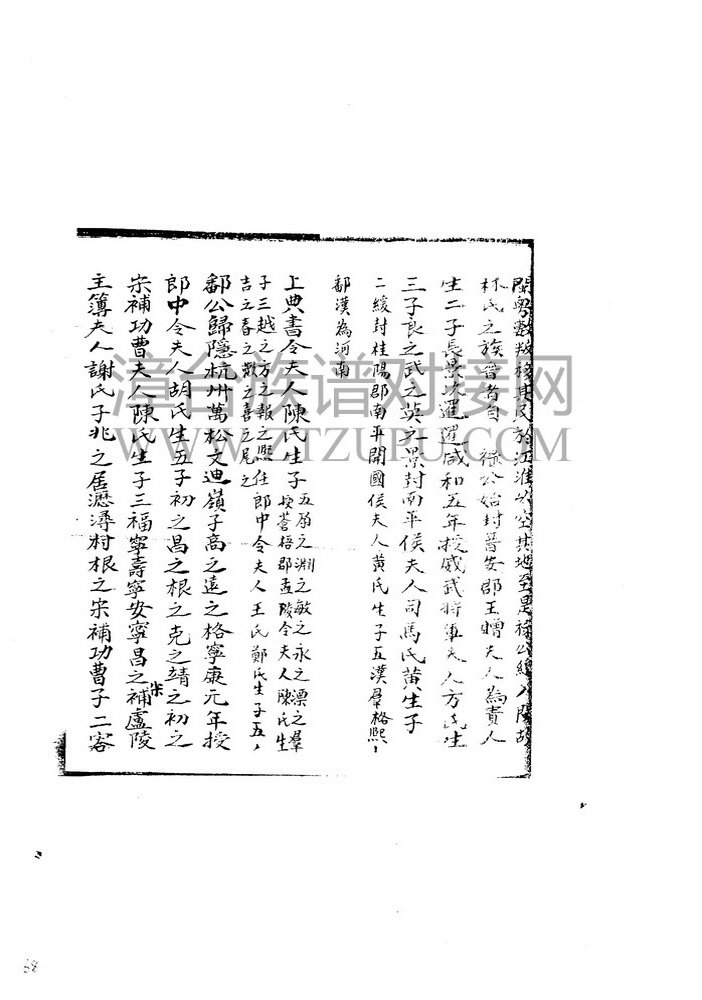 閩粤數叛移其民於江淮以空其地至是祿公始入閩故
林氏之族晉者自祿公始封晉安郡王贈夫人為貴人
生二子長景次暹暹咸和五年授威武將軍夫人方氏生
三子良之武之英之景封南平侯夫人司馬氏黄生子
二緩封桂陽郡南平開國侯夫人黄氏生子五漢羣格熙
鄱漢為河南
上典書令夫人陳氏生子五原之淵之敏之永之漂之羣
授蒼梧郡孟陵令夫人陳氏生
子三越之方之報之熙任郎中令夫人王氏鄭氏生子五
吉之春之歡之喜之尾之
鄱公歸隱杭州萬松文迪嶺子高之遠之格寧康元年授
郎中令夫人胡氏生五子初之昌之根之克之靖之初之
宋補功曹夫人陳氏生子三福寧壽寧安寧昌之宋補盧陵
主簿夫人謝氏子兆之居瀝潯村根之宋補功曹子二客
漳台族谱对接网
WWW.ZTZUPU.COM
68